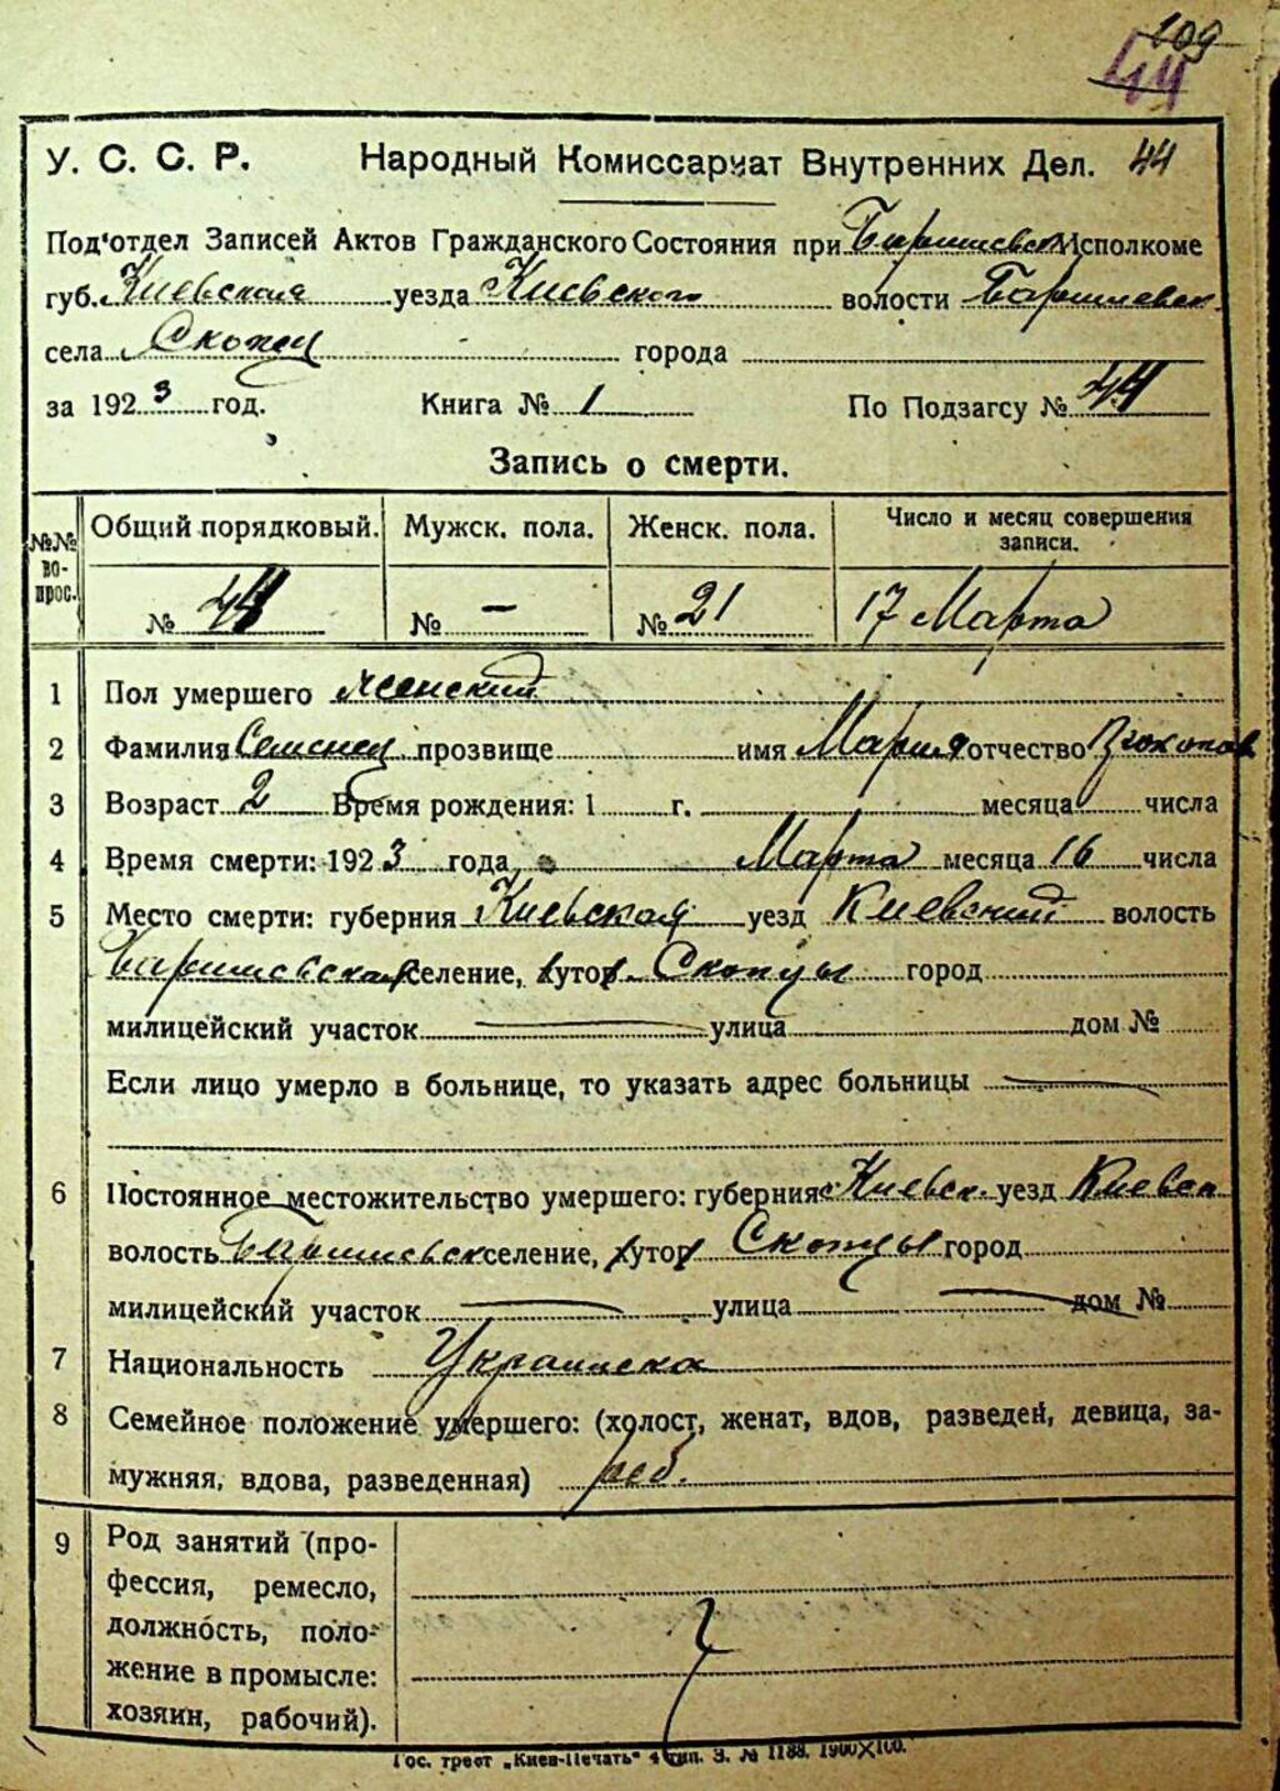 109
44
У. С. С. Р. Народный Комиссариат Внутренних Дел. 44
Под'отдел Записей Актов Гражданского Состояния при Баришевск Исполкоме
губ. Киевская уезда Киевского волости Баришевск.
села Скопцы города
за 1923 год. Книга № 1 По Подзагсу № 44
Запись о смерти.
№№ во-прос. Общий порядковый. Мужск. пола. Женск. пола. Число и месяц совершения
записи.
№ 44 № — № 21 17 Марта
1 Пол умершего женский
2 Фамилия прозвище имя Мария отчество Прокопов
3 Возраст 2 Время рождения: 1 г. месяца числа
4 Время смерти: 1923 года Марта месяца 16 числа
5 Место смерти: губерния Киевская уезд Киевский волость
Баришевская селение, хутор Скопцы город
милицейский участок — улица дом №
Если лицо умерло в больнице, то указать адрес больницы —
6 Постоянное местожительство умершего: губерния Киевск. уезд Киевск
волость Баришевск селение, хутор Скопцы город
милицейский участок — улица — дом №
7 Национальность Украинска
8 Семейное положение умершего: (холост, женат, вдов, разведен, девица, за-
мужняя, вдова, разведенная) реб.
9 Род занятий (про-
фессия, ремесло,
должность, поло-
жение в промысле:
хозяин, рабочий).
Гос. трест „Киев-Печать" 4 тип. З. № 1188. 1900×100.